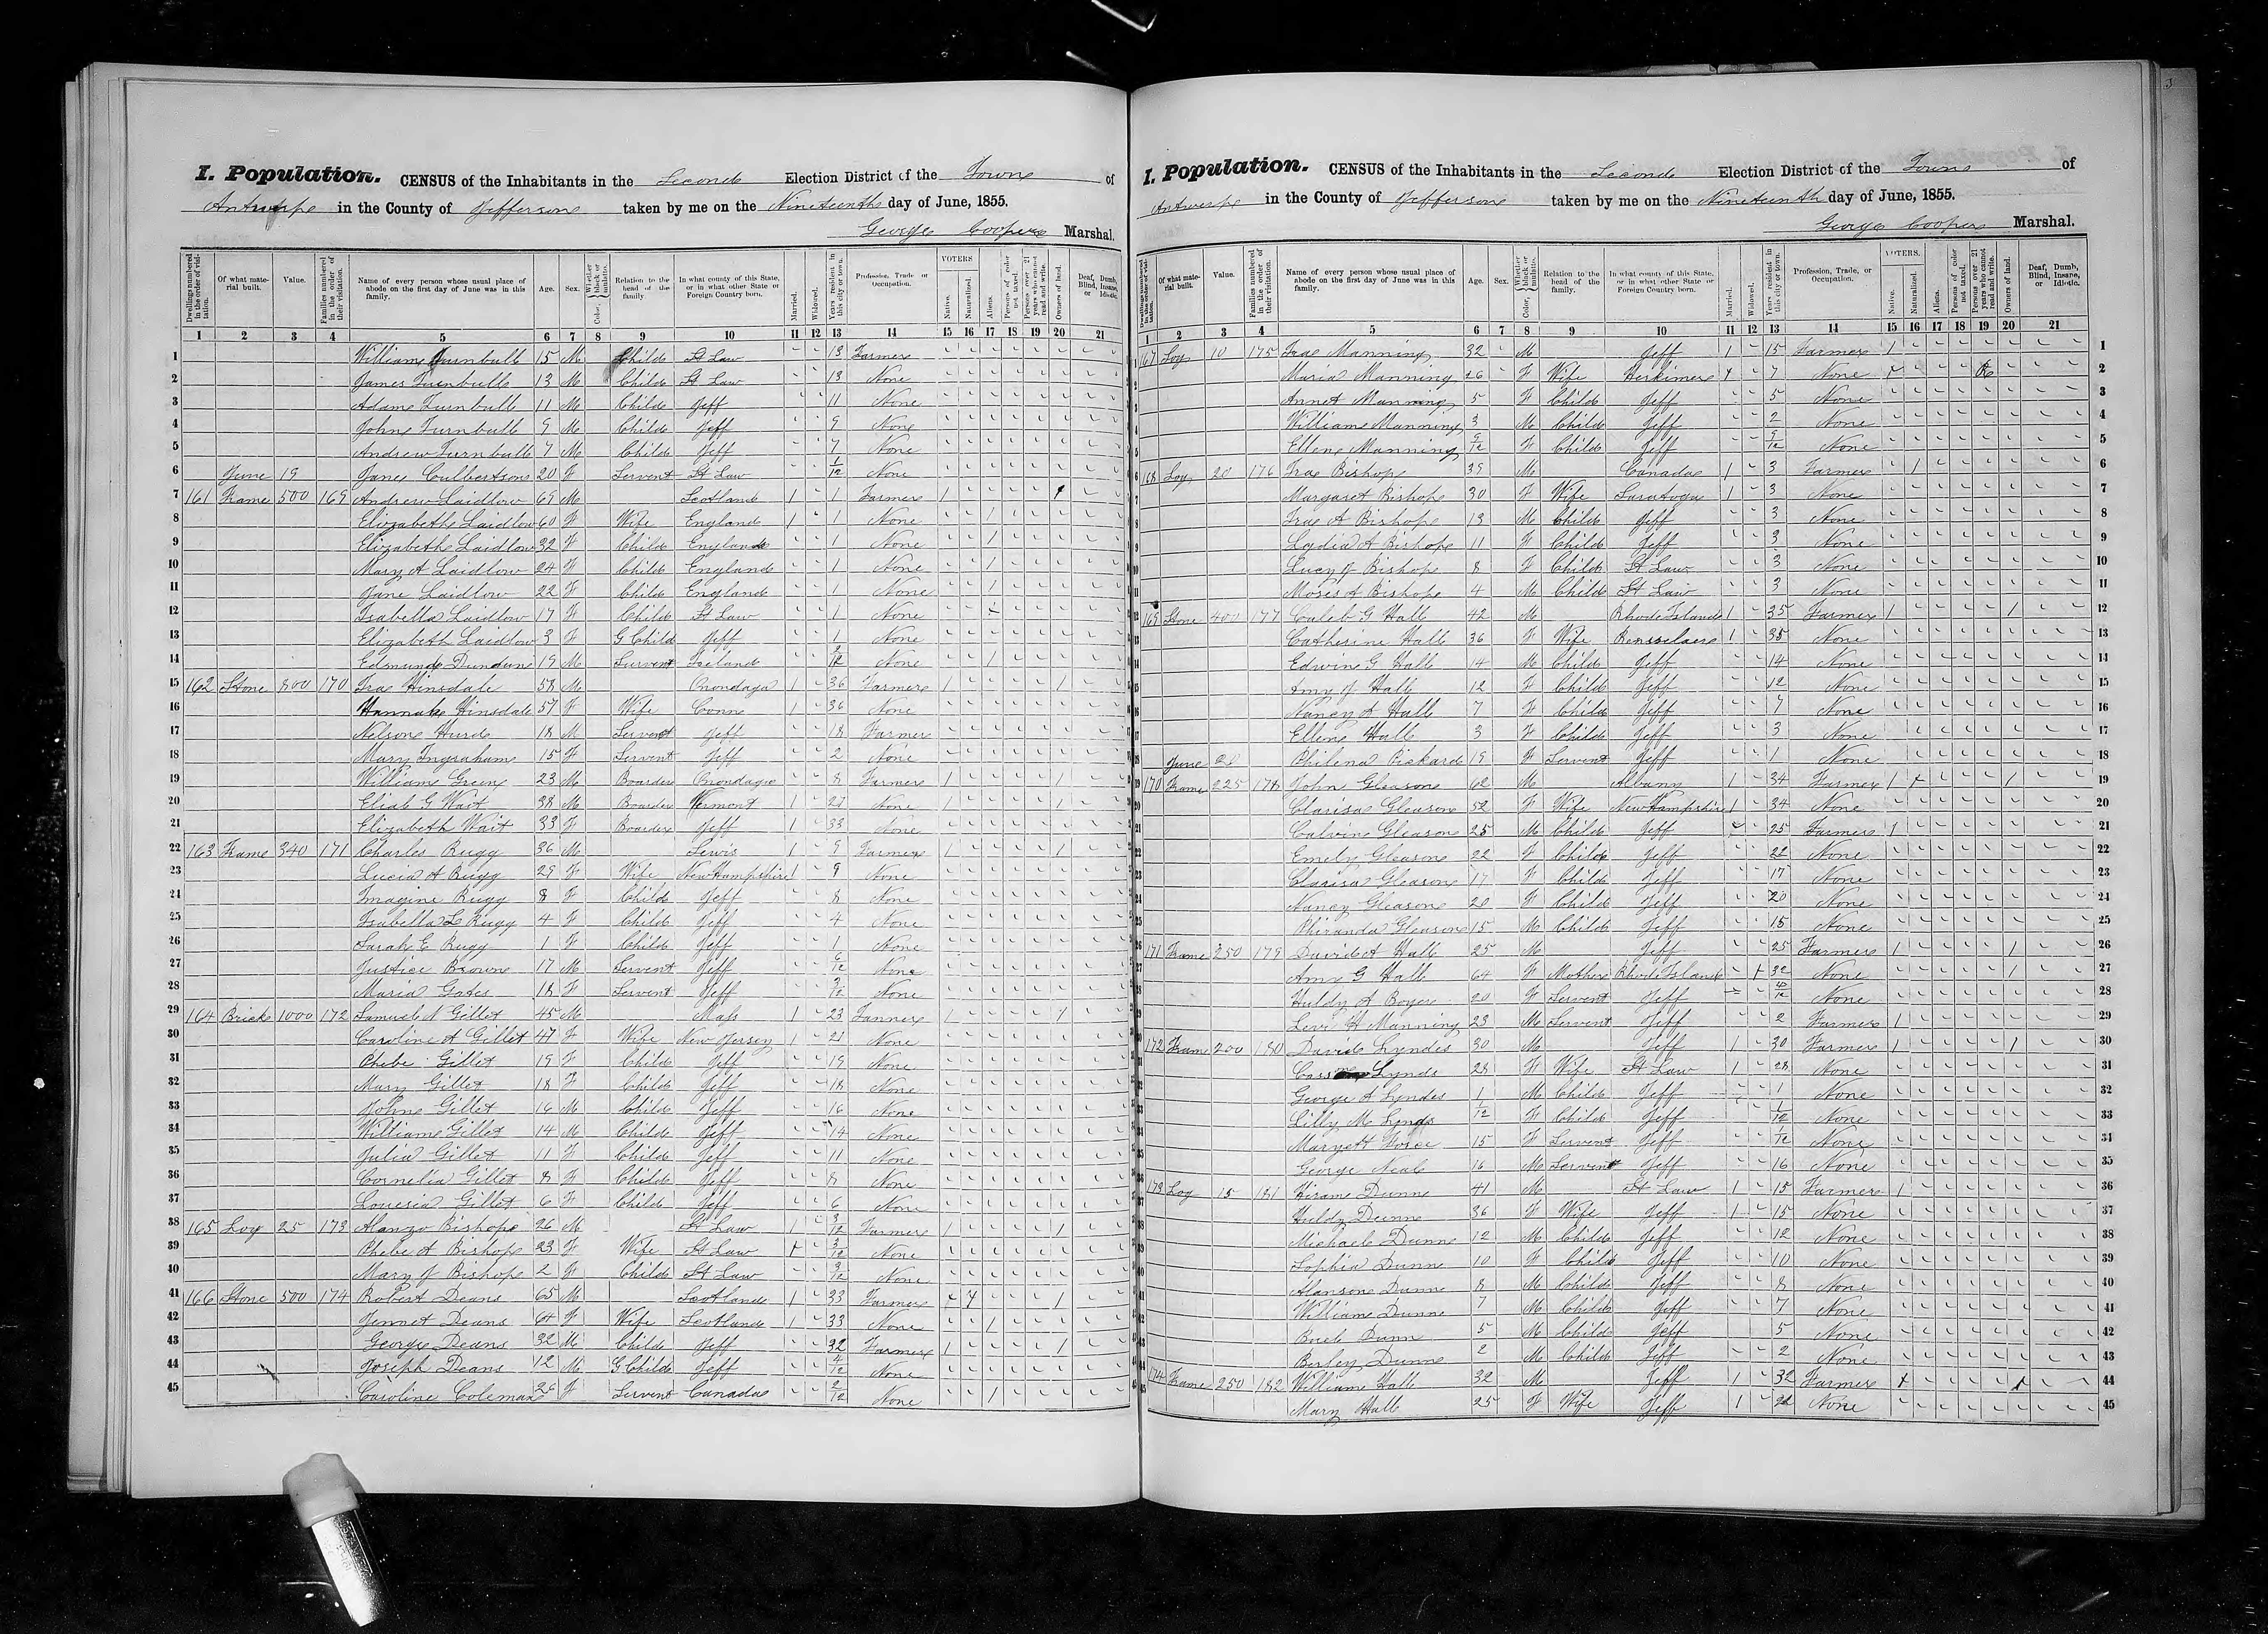 I. Population. CENSUS of the Inhabitants in the Second Election District of the Town of
Antwerp in the County of Jefferson taken by me on the Nineteenth day of June, 1855.
George Cooper Marshal.
Dwellings numbered in the order of visitation. Of what material built. Value. Families numbered in the order of their visitation. Name of every person whose usual place of abode on the first day of June was in this family. Age. Sex. Color Whether black or mulatto. Relation to the head of the family In what county of this State, or in what other State or Foreign Country born. Married. Widowed. Years resident in this city or town. Profession, Trade or Occupation. VOTERS Native. Naturalized. Aliens. Persons of color not taxed. Persons over 21 years who cannot read and write. Owners of land. Deaf, Dumb, Blind, Insane, or Idiotic.
1 2 3 4 5 6 7 8 9 10 11 12 13 14 15 16 17 18 19 20 21
1 William Turnbull 15 M Child St Law 13 Farmer
2 James Turnbull 13 M Child St Law 13 None
3 Adam Turnbull 11 M Child Jeff 11 None
4 John Turnbull 9 M Child Jeff 9 None
5 Andrew Turnbull 7 M Child Jeff 7 None
6 June 19 Jane Culbertson 20 F Servent St Law 1/12 None
7 161 Frame 500 169 Andrew Laidlow 69 M Scotland 1 1 Farmer 1 1
8 Elizabeth Laidlow 60 F Wife England 1 1 None 1
9 Elizabeth Laidlow 32 F Child England 1 None 1
10 Mary A Laidlow 24 F Child England 1 None 1
11 Jane Laidlow 22 F Child England 1 None 1
12 Isabella Laidlow 17 F Child St Law 1 None
13 Elizabeth Laidlow 3 F G Child Jeff 1 None
14 Edmund 19 M Survent Ireland 2/12 None 1
15 162 Stone 800 170 Ira Hinsdale 58 M Onondaga 1 36 Farmer 1 1
16 Hannah Hinsdale 57 F Wife Conn 1 36 None
17 Nelson Hurd 18 M Servent Jeff 18 Farmer
18 Mary Ingraham 15 F Servent Jeff 2 None
19 William Green 23 M Boarder Onondaga 8 Farmer 1 1
20 Eliab G Wait 38 M Boarder Vermont 1 21 None 1 1
21 Elizabeth Wait 33 F Boarder Jeff 1 33 None
22 163 Frame 340 171 Charles Rugg 36 M Lewis 1 9 Farmer 1 1
23 Lucia A Rugg 29 F Wife New Hampshire 1 9 None
24 Imagine Rugg 8 F Child Jeff 8 None
25 Isabella L Rugg 4 F Child Jeff 4 None
26 Sarah E Rugg 1 F Child Jeff 1 None
27 Justice Brown 17 M Servent Jeff 6/12 None
28 Maria Gates 18 F Servent Jeff 3/12 None
29 164 Brick 1000 172 Samuel N Gillet 45 M Mass 1 23 Tanner 1 1
30 Caroline A Gillet 47 F Wife New Jersey 1 21 None
31 Phebe Gillet 19 F Child Jeff 19 None
32 Mary Gillet 18 F Child Jeff 18 None
33 John Gillet 16 M Child Jeff 16 None
34 William Gillet 14 M Child Jeff 14 None
35 Julia Gillet 11 F Child Jeff 11 None
36 Cornelia Gillet 8 F Child Jeff 8 None
37 Louisia Gillet 6 F Child Jeff 6 None
38 165 Log 25 173 Alanzo Bishop 26 M St Law 1 3/12 Farmer 1 1
39 Phebe A Bishop 23 F Wife St Law 1 3/12 None
40 Mary J Bishop 2 F Child St Law 3/12 None
41 166 Stone 500 174 Robert Deans 65 M Scotland 1 33 Farmer 1 1
42 Jennet Deans 64 F Wife Scotland 1 33 None 1
43 George Deans 32 M Child Jeff 32 Farmer 1 1
44 Joseph Deans 12 M G Child Jeff 4/12 None
45 Caroline Coleman 26 F Servent Canada 2/12 None 1
I. Population. CENSUS of the Inhabitants in the Second Election District of the Town of
Antwerp in the County of Jefferson taken by me on the Nineteenth day of June, 1855.
George Cooper Marshal.
Dwellings numbered in the order of visitation. Of what material built. Value. Families numbered in the order of their visitation. Name of every person whose usual place of abode on the first day of June was in this family. Age. Sex. Color, Whether black or mulatto. Relation to the head of the family. In what county of this State, or in what other State or Foreign Country born. Married. Widowed. Years resident in this city or town. Profession, Trade, or Occupation. VOTERS. Native. Naturalized. Aliens. Persons of color not taxed. Persons over 21 years who cannot read and write. Owners of land. Deaf, Dumb, Blind, Insane, or Idiotic.
1 2 3 4 5 6 7 8 9 10 11 12 13 14 15 16 17 18 19 20 21
167 Log 10 175 Ira Manning 32 M Jeff 1 15 Farmer 1 1
Maria Manning 26 F Wife Herkimer 7 None 2
Annet Manning 5 F Child Jeff 5 None 3
William Manning 3 M Child Jeff 2 None 4
Ellen Manning 9/12 F Child Jeff 9/12 None 5
168 Log 20 176 Ira Bishop 39 M Canada 1 3 Farmer 1 6
Margaret Bishop 30 F Wife Saratoga 1 3 None 7
Ira A Bishop 13 M Child Jeff 3 None 8
Lydia A Bishop 11 F Child Jeff 3 None 9
Lucy J Bishop 8 F Child St Law 3 None 10
Moses A Bishop 4 M Child St Law 3 None 11
169 Stone 400 177 Caleb G Hall 42 M Rhode Island 1 35 Farmer 1 1 12
Catherine Hall 36 F Wife Rensselaer 1 35 None 13
Edwin G Hall 14 M Child Jeff 14 None 14
Amy J Hall 12 F Child Jeff 12 None 15
Nancy A Hall 7 F Child Jeff 7 None 16
Ellen Hall 3 F Child Jeff 3 None 17
June Philena Pickard 19 F Servent Jeff 1 None 18
170 Frame 225 178 John Gleason 62 M Albany 1 34 Farmer 1 1 19
Clarisa Gleason 52 F Wife New Hampshire 1 34 None 20
Calvin Gleason 25 M Child Jeff 25 Farmer 1 21
Emely Gleason 22 F Child Jeff 22 None 22
Clarisa Gleason 17 F Child Jeff 17 None 23
Nancy Gleason 20 F Child Jeff 20 None 24
Phiranda Gleason 15 M Child Jeff 15 None 25
171 Frame 250 179 David A Hall 25 M Jeff 25 Farmer 1 1 26
Amy G Hall 64 F Mother Rhode Island 1 32 None 1 27
Huldy A Boyer 20 F Servent Jeff None 28
Levi H Manning 23 M Servent Jeff 2 Farmer 1 29
172 Frame 200 180 David Lyndes 30 M Jeff 1 30 Farmer 1 1 30
Lynds 28 F Wife St Law 1 28 None 31
George A Lyndes 1 M Child Jeff 1 None 32
Lilly M Lynds 1/12 F Child Jeff 1/12 None 33
Maryett 15 F Servent Jeff None 34
George Neal 16 M Servent Jeff 16 None 35
173 Log 15 181 Hiram Dunn 41 M St Law 1 15 Farmer 1 36
Huldy Dunn 36 F Wife Jeff 1 15 None 37
Michael Dunn 12 M Child Jeff 12 None 38
Sophia Dunn 10 F Child Jeff 10 None 39
Alanson Dunn 8 M Child Jeff 8 None 40
William Dunn 7 M Child Jeff 7 None 41
Dunn 5 M Child Jeff 5 None 42
Dunn 2 M Child Jeff 2 None 43
174 Frame 250 182 William Hall 32 M Jeff 1 32 Farmer 1 1 44
Mary Hall 25 F Wife Jeff 1 None 45